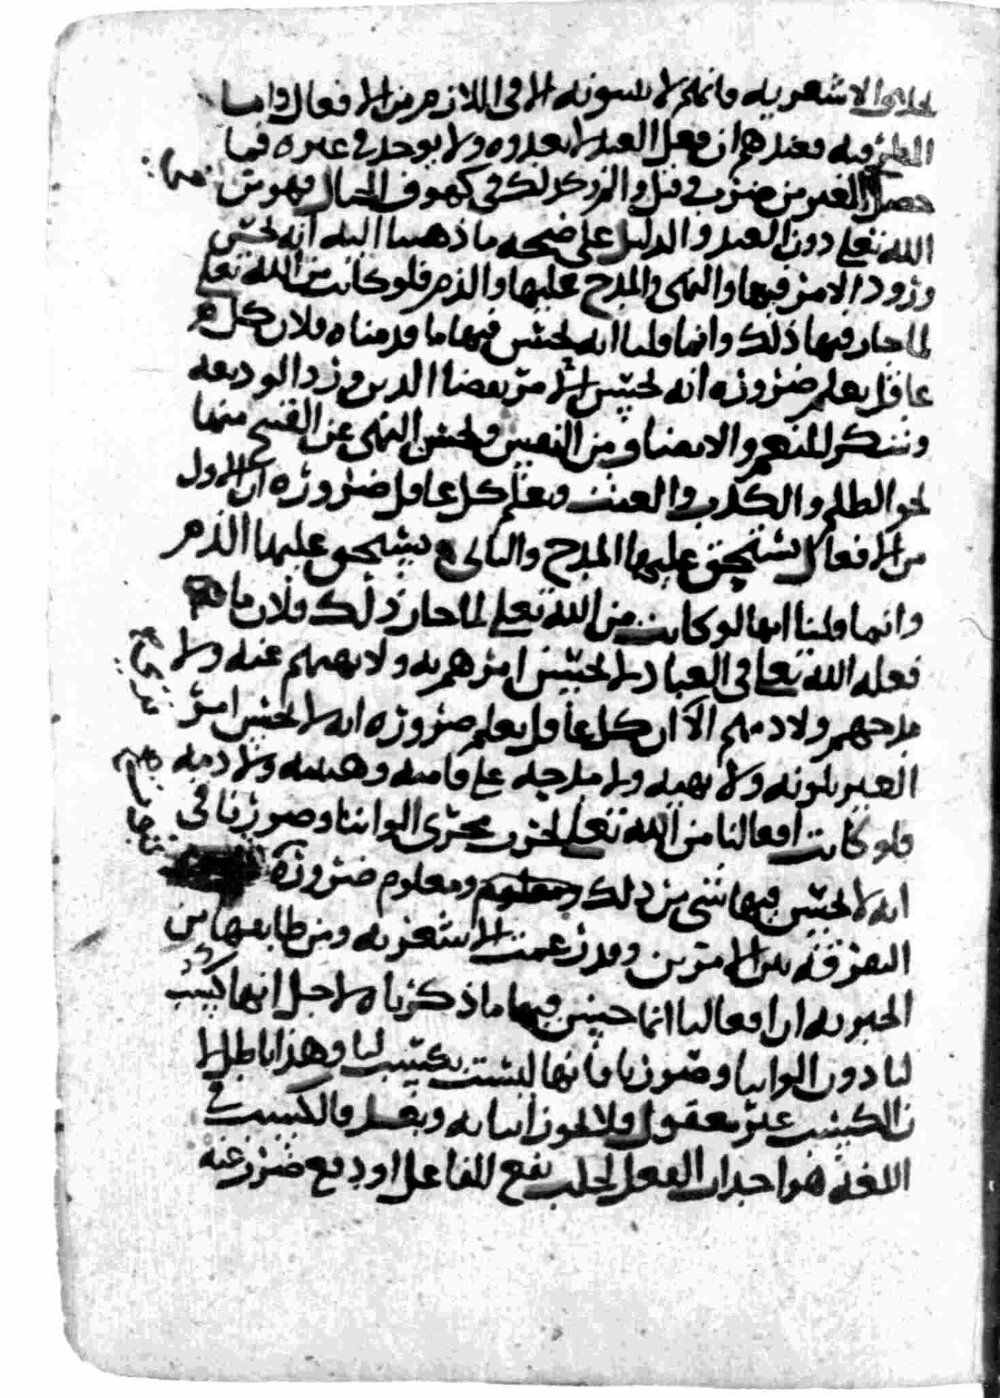 الاشعريه فانهم لا يسمونه الا فى اللازم من الافعال واما
المطرفيه فعندهم ان فعل العبد لا يعدوه ولا يوجد في غيره فما
حصل في الغير من ضرب وقتل والزوكذلك كهوف الجبال فهو من
الله تعلى دون العبد والدليل على صحه ما ذهبنا اليه انه يحسن
ورود الامر فيها والنهى والمدح عليها والذم فلو كانت من الله تعلى
لما جاز فيها ذلك وانما قلنا انه يحسن فيها ما قدمناه فلان كل
عاقل يعلم ضروره انه يحسن الامر بقضا الدين ورد الوديعه
وشكر المنعم والانصاف من النفس ويحسن النهى عن القبيح منها
نحو الظلم والكذب والعبث ويعلم كل عاقل ضروره ان الاول
من الافعال يستحق عليها المدح والثانى يستحق عليها الذم
وانما قلنا انها لو كانت من الله تعلى لما جاز ذلك فلان ما
فعله الله تعلى فى العباد لا يحسن امرهم به ولا نهيهم عنه ولا
مدحهم ولا ذمهم الا ان كل عاقل يعلم ضروره انه لا يحسن امر
الغير بلونه ولا نهيه ولا مدحه على قامته وهيئته ولا ذمه
فلو كانت افعالنا من الله تعلى لجرت مجرى الواننا وصورنا فى
انه لا يحسن فيها شى من ذلك ومعلوم ضروره
التفرقه بين الامرين وقد زعمت الاشعريه ومن طابقها من
الجبريه ان افعالنا انما حسن فيها ما ذكرناه لاجل انها كسب
لنا دون الواننا وصورنا فانها ليست بكسب لنا وهذا باطل لا
ن الكسب غير معقول فلا يجوز اثباته وبعد فالكسب في
اللغه هو احداث الفعل لجلب نفع للفاعل او دفع ضرر عنه